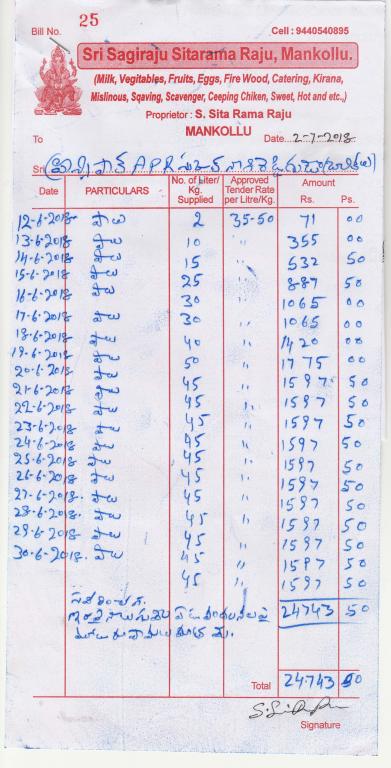 Bill No. 25 Cell : 9440540895
Sri Sagiraju Sitarama Raju, Mankollu.
(Milk, Vegitables, Fruits, Eggs, Fire Wood, Catering, Kirana,
Mislinous, Sqaving, Scavenger, Ceeping Chiken, Sweet, Hot and etc.,)
Proprietor : S. Sita Rama Raju
MANKOLLU
To Date 2-7-2018
Sri APR
Date PARTICULARS No. of Liter/ Kg. Supplied Approved Tender Rate per Litre/Kg. Amount Rs. Ps.
12-6-2018 పాలు 2 35-50 71 00
13-6-2018 పాలు 10 " 355 00
14-6-2018 పాలు 15 " 532 50
15-6-2018 పాలు 25 " 887 50
16-6-2018 పాలు 30 " 1065 00
17-6-2018 పాలు 30 " 1065 00
18-6-2018 పాలు 40 " 1420 00
19-6-2018 పాలు 50 " 1775 00
20-6-2018 పాలు 45 " 1597 50
21-6-2018 పాలు 45 " 1597 50
22-6-2018 పాలు 45 " 1597 50
23-6-2018 పాలు 45 " 1597 50
24-6-2018 పాలు 45 " 1597 50
25-6-2018 పాలు 45 " 1597 50
26-6-2018 పాలు 45 " 1597 50
27-6-2018 పాలు 45 " 1597 50
28-6-2018 పాలు 45 " 1597 50
29-6-2018 పాలు 45 " 1597 50
30-6-2018 పాలు 45 " 1597 50
24743 50
Total 24743 50
Signature